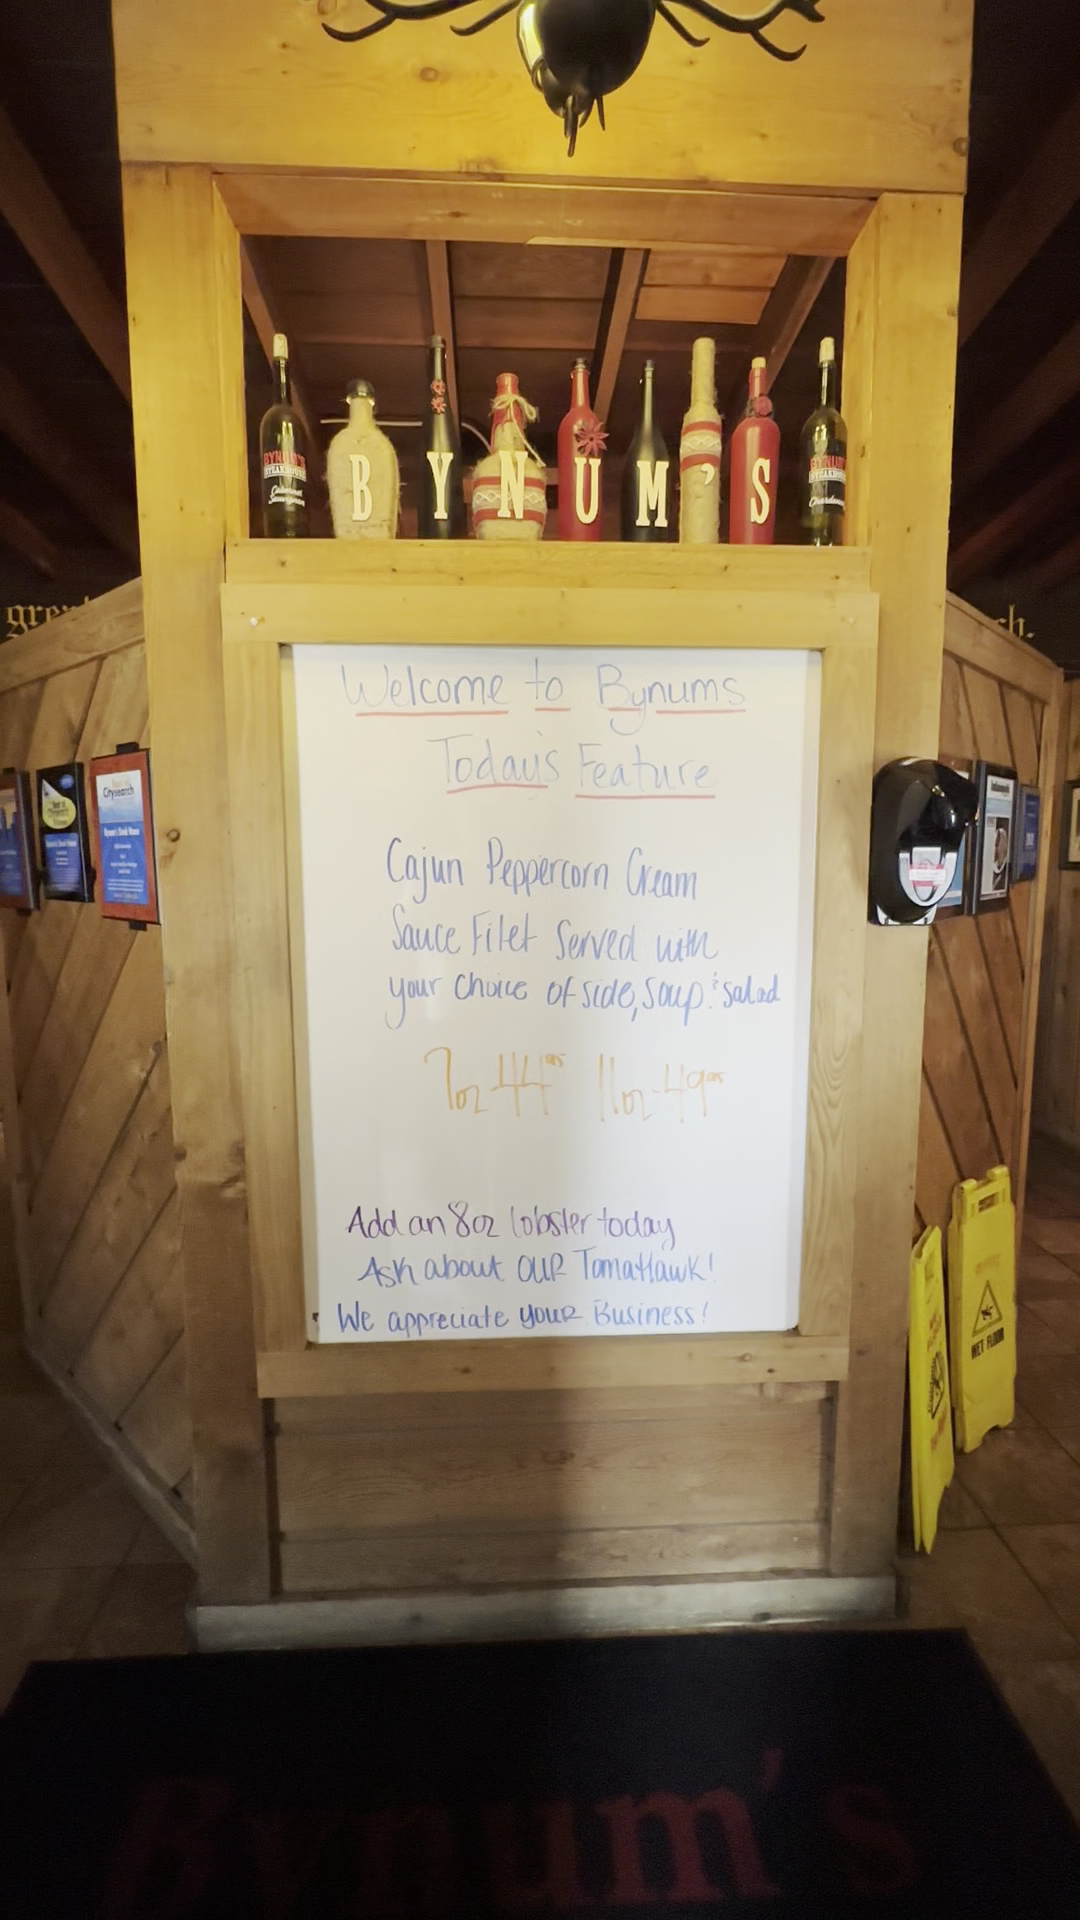 BYNUM'S
STEAKHOUSE
Cabernet
Sauvignon
B Y N U M ' S
BYNUM'S
STEAKHOUSE
Chardonnay
Welcome to Bynums
Today's Feature
Cajun Peppercorn Cream
Sauce Filet Served with
your choice of side, soup & salad
7oz-44⁹⁵ 11oz-49⁹⁵
Add an 8oz lobster today
Ask about OUR TomaHawk!
We appreciate your Business!
Citysearch
Bynum's Steak House
WET FLOOR
Bynum's